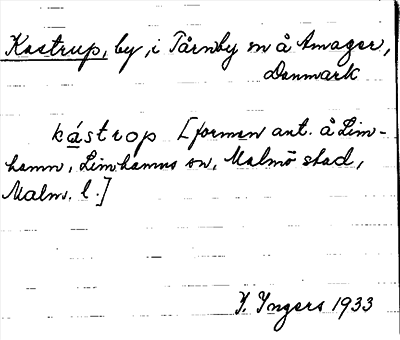 Kastrup, by, i Tårnby sn å Amager,
Danmark
kástrop [formen ant. å Lim-
hamn, Limhamns sn, Malmö stad,
Malm. l.]
I. Ingers 1933